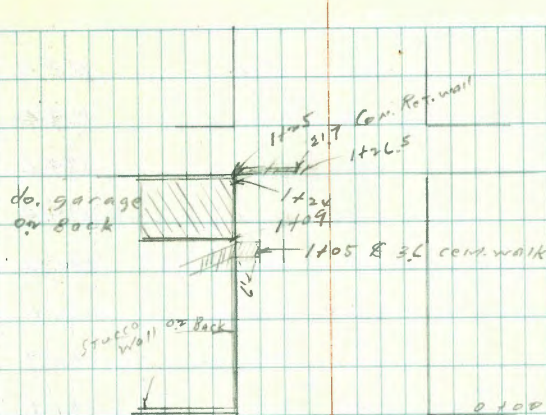 Con. Ret. wall
1+25
21.7
1+26.5
do. garage
on Back
1+24
1+09
1+05 ⅊ 3.6 cem. walk
6.2
Stucco on Back
wall
0+00